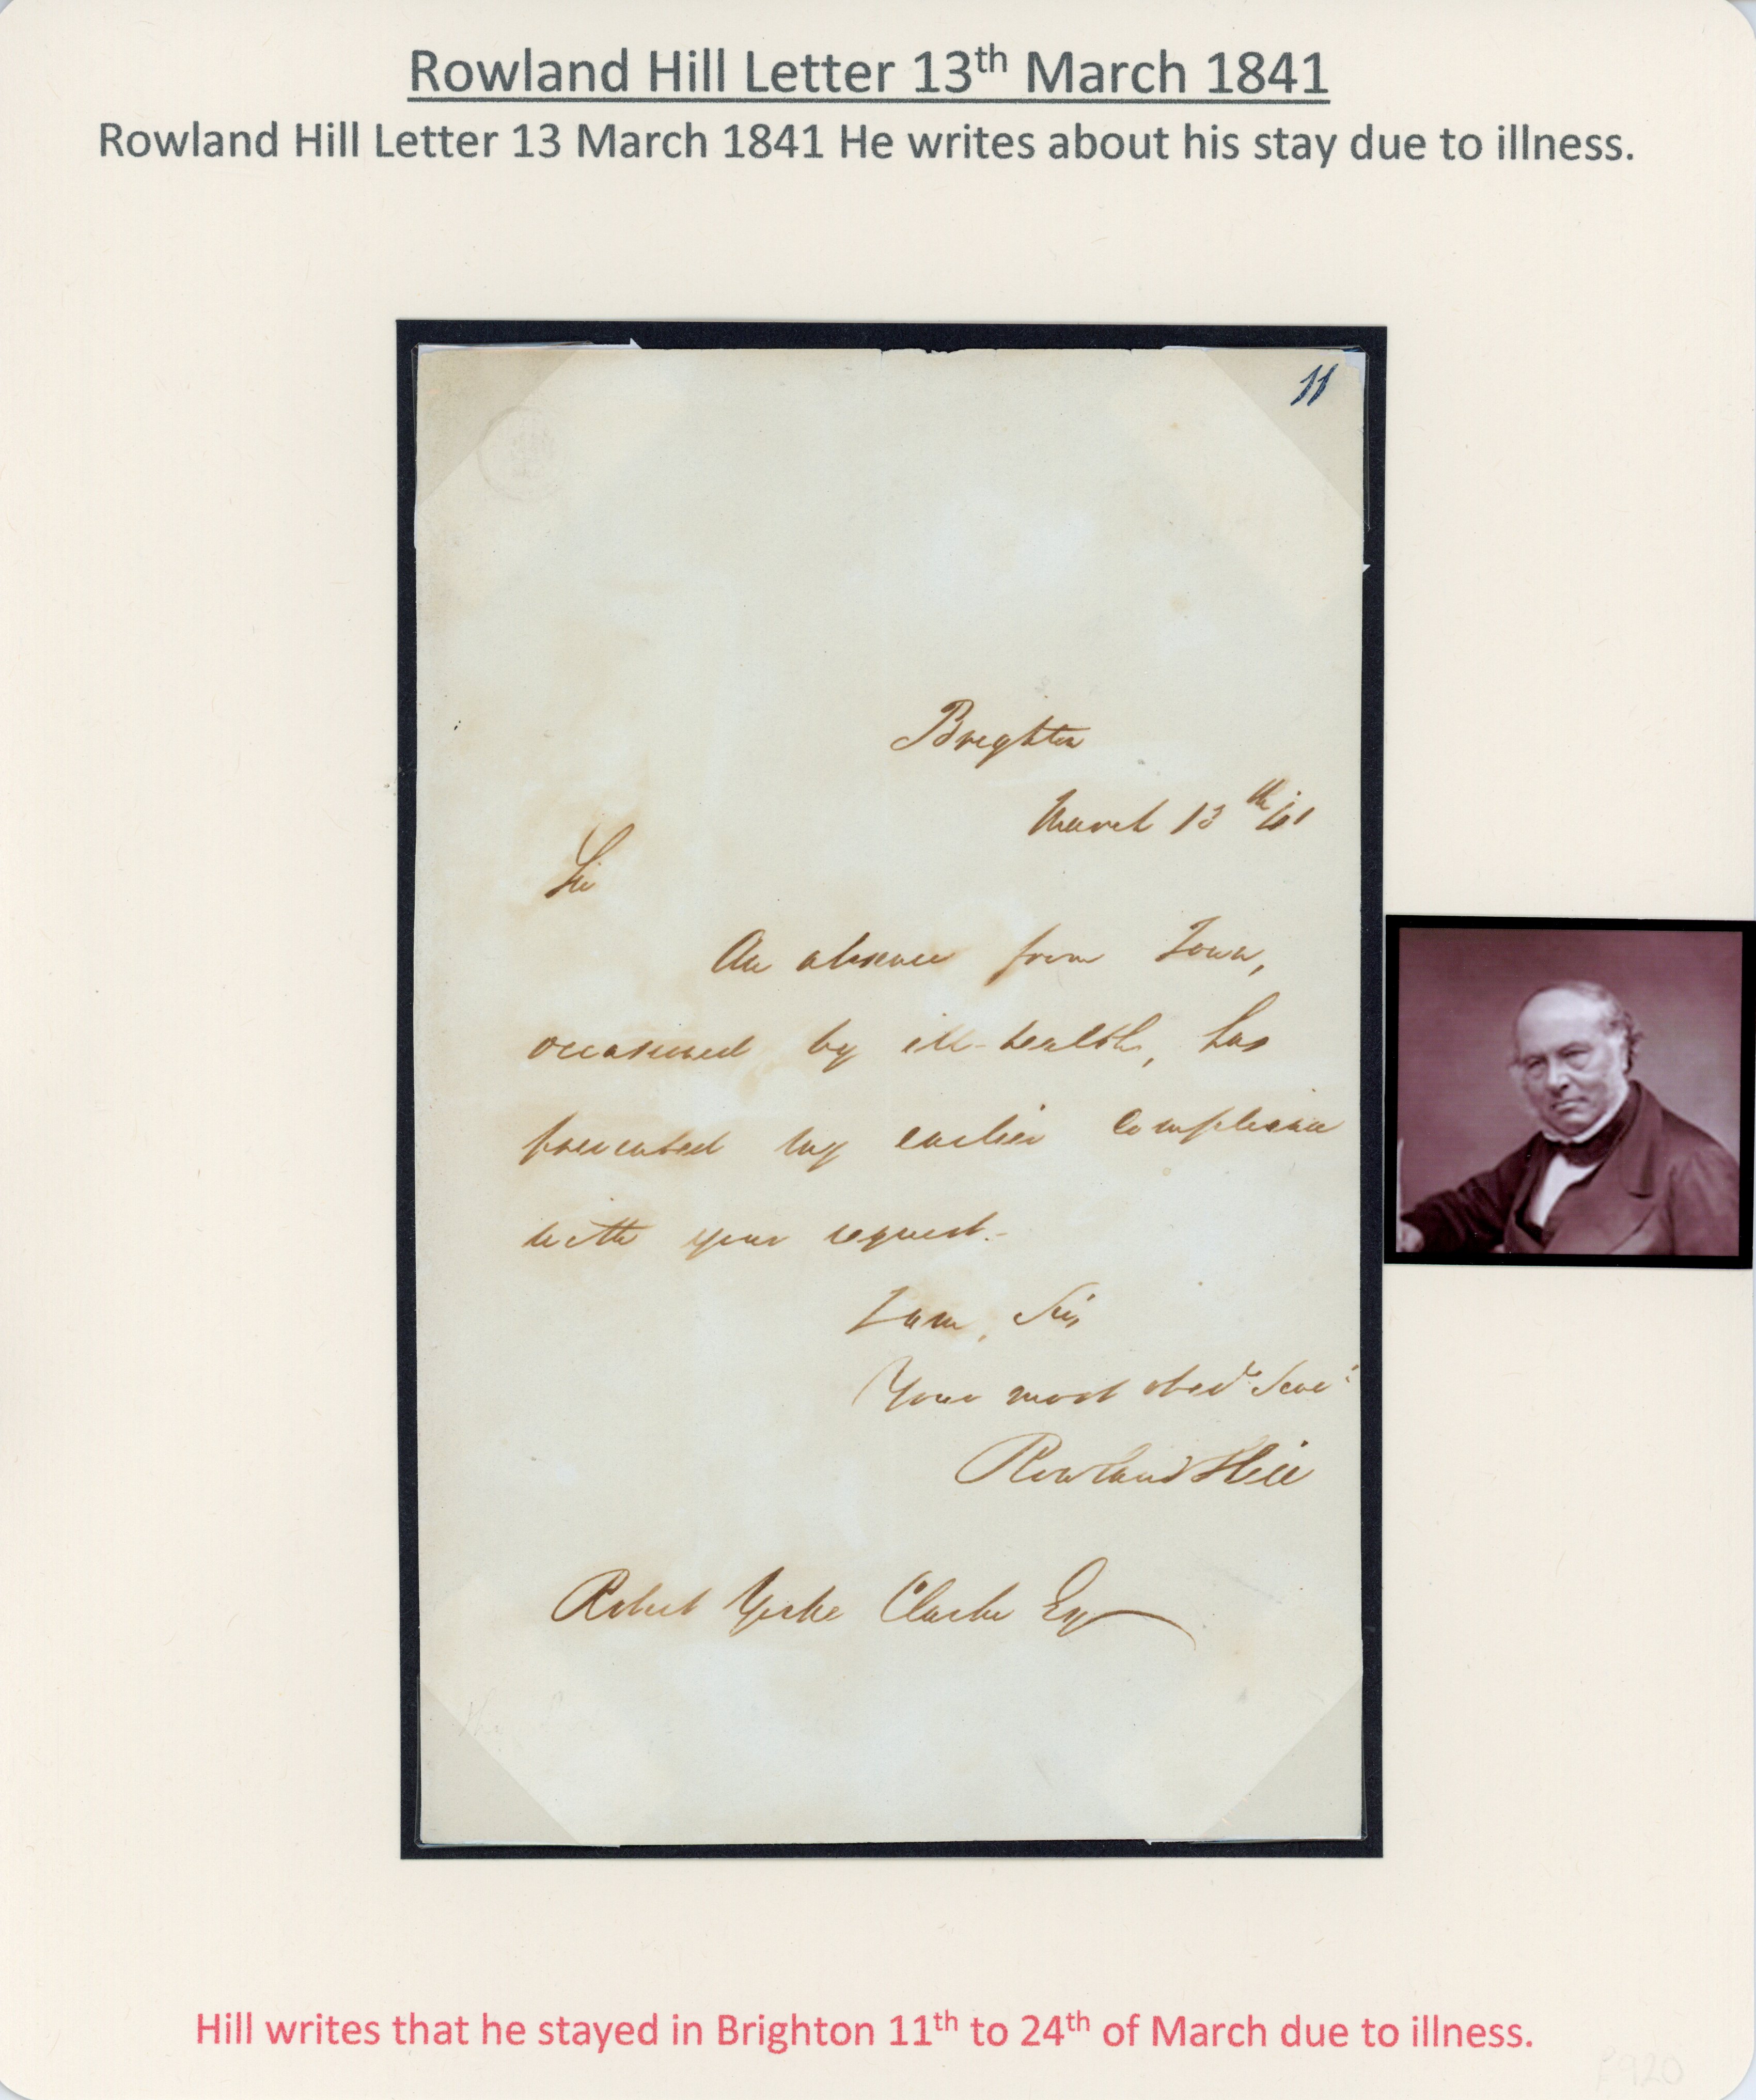 Rowland Hill Letter 13th March 1841
Rowland Hill Letter 13 March 1841 He writes about his stay due to illness.
11
Brighton
March 13th /41
Sir
An absence from Town,
occasioned by ill-health, has
prevented my earlier compliance
with your request.-
I am, Sir,
Your most obedt Servt
Rowland Hill
Robert Yorke Clarke Esq
Hill writes that he stayed in Brighton 11th to 24th of March due to illness.
£920